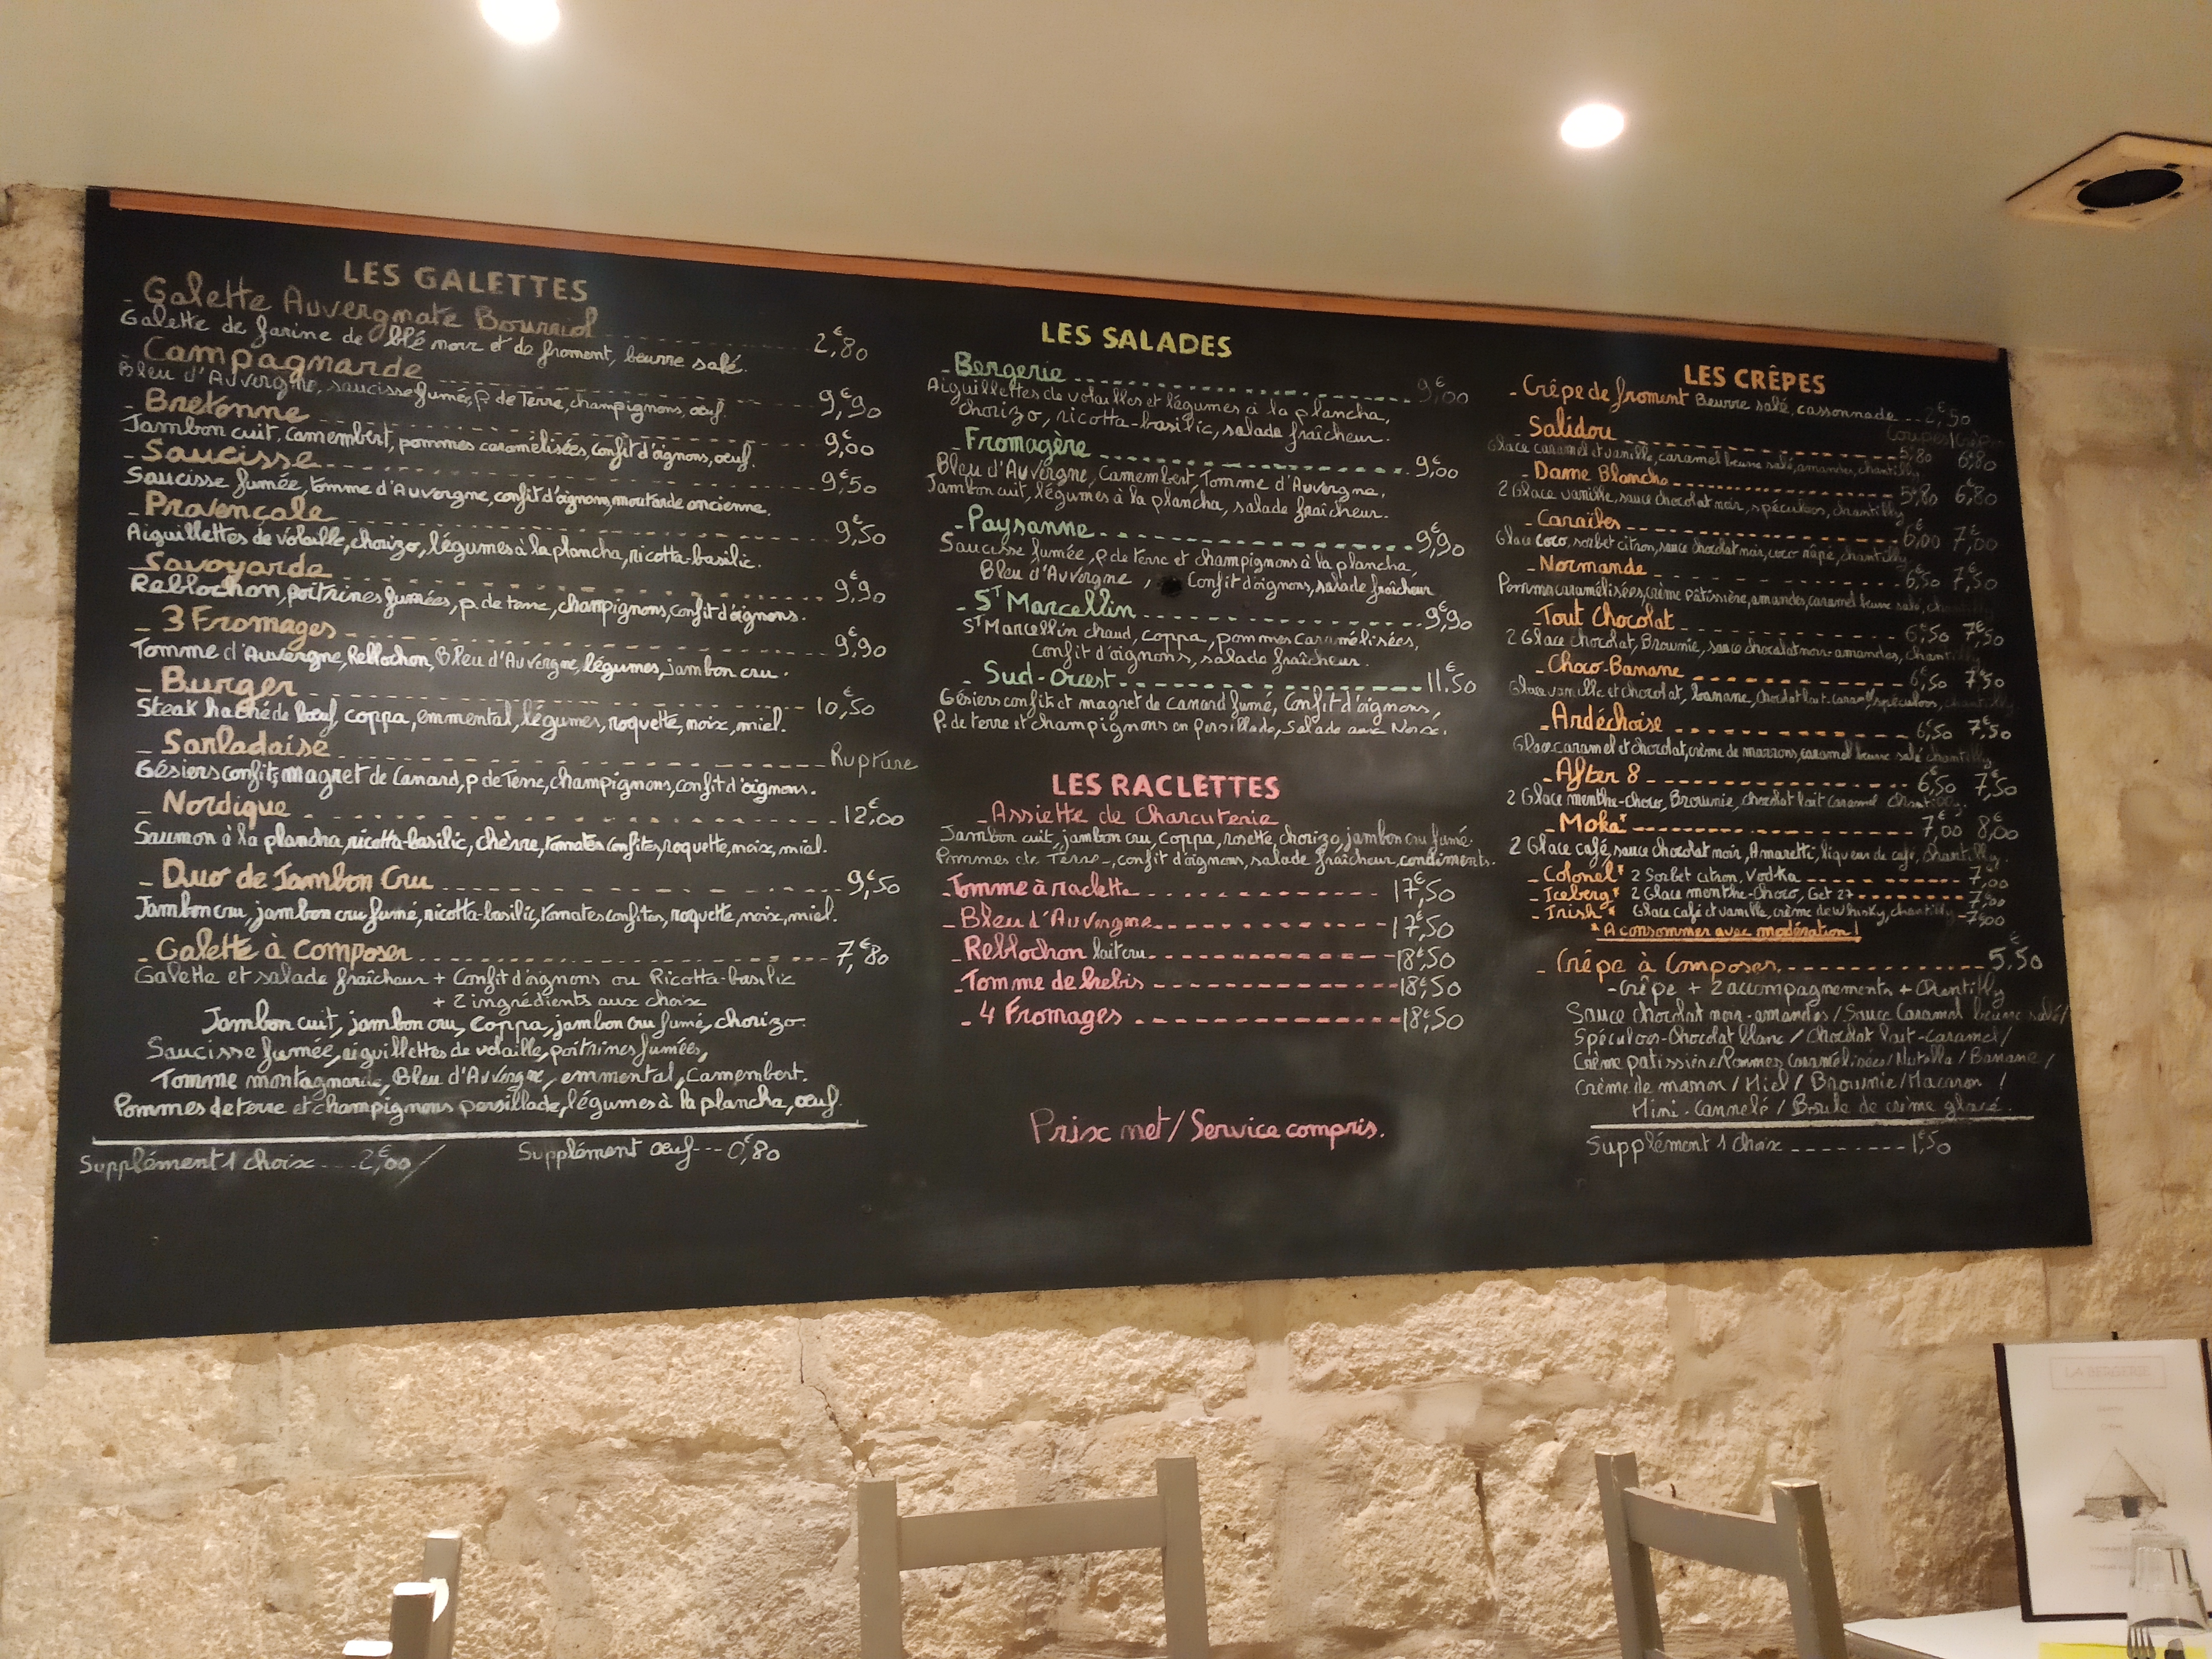 LES GALETTES
- Galette Auvergnate Bourriol 2,€80
Galette de farine de blé noir et de froment, beurre salé.
- Campagnarde 9,€90
Bleu d'Auvergne, saucisse fumée, p. de Terre, champignons, œuf.
- Bretonne 9,€00
Jambon cuit, camembert, pommes caramélisées, confit d'oignons, œuf.
- Saucisse 9,€50
Saucisse fumée, tomme d'Auvergne, confit d'oignons, moutarde ancienne.
- Provençale 9,€50
Aiguillettes de volaille, chorizo, légumes à la plancha, ricotta-basilic.
- Savoyarde 9,€90
Reblochon, poitrines fumées, p. de terre, champignons, confit d'oignons.
- 3 Fromages 9,€90
Tomme d'Auvergne, Reblochon, Bleu d'Auvergne, légumes, jambon cru.
- Burger 10,€50
Steak haché de bœuf, coppa, emmental, légumes, roquette, noix, miel.
- Sarladaise Rupture
Gésiers confits, magret de Canard, p de Terre, champignons, confit d'oignons.
- Nordique 12,€00
Saumon à la plancha, ricotta-basilic, chèvre, tomates confites, roquette, noix, miel.
- Duo de Jambon Cru 9,€50
Jambon cru, jambon cru fumé, ricotta-basilic, tomates confites, roquette, noix, miel.
- Galette à composer 7,€80
Galette et salade fraîcheur + Confit d'oignons ou Ricotta-basilic
+ 2 ingrédients aux choix
Jambon cuit, jambon cru, coppa, jambon cru fumé, chorizo.
Saucisse fumée, aiguillettes de volaille, poitrines fumées,
Tomme montagnarde, Bleu d'Auvergne, emmental, Camembert.
Pommes de terre et champignons persillade, légumes à la plancha, œuf.
Supplément 1 choix 2,€00 / Supplément œuf 0,€80
LES SALADES
- Bergerie 9,€00
Aiguillettes de volailles et légumes à la plancha,
Chorizo, ricotta-basilic, salade fraîcheur.
- Fromagère 9,€00
Bleu d'Auvergne, Camembert, Tomme d'Auvergne,
Jambon cuit, légumes à la plancha, salade fraîcheur.
- Paysanne 9,€90
Saucisse fumée, p de terre et champignons à la plancha,
Bleu d'Auvergne, Confit d'oignons, salade fraîcheur
- ST Marcellin 9,€90
ST Marcellin chaud, coppa, pommes caramélisées,
Confit d'oignons, salade fraîcheur.
- Sud-Ouest 11.€50
Gésiers confit et magret de canard fumé, Confit d'oignons,
P. de terre et champignons en persillade, Salade aux Noix.
LES RACLETTES
- Assiette de Charcuterie
Jambon cuit, jambon cru, coppa, rosette, chorizo, jambon cru fumé.
Pommes de Terre, confit d'oignons, salade fraîcheur, condiments.
- Tomme à raclette 17,€50
- Bleu d'Auvergne 17,€50
- Reblochon lait cru 18,€50
- Tomme de brebis 18,€50
- 4 Fromages 18,€50
Prix net / Service compris.
LES CRÊPES
- Crêpe de froment Beurre salé, cassonnade 2,€50
Coupes/Crêpes
- Salidou 5,€80 6,€80
Glace caramel et vanille, caramel beurre salé, amandes, chantilly
- Dame Blanche 5,€80 6,€80
2 Glace vanille, sauce chocolat noir, spéculoos, chantilly
- Caraïbes 6,€00 7,€00
Glace coco, sorbet citron, sauce chocolat noir, coco râpé, chantilly
- Normande 6,€50 7,€50
Pommes caramélisées, crème pâtissière, amandes, caramel beurre salé,
- Tout Chocolat 6,€50 7,€50
2 Glace chocolat, Brownie, sauce chocolat noir-amandes, chantilly
- Choco-Banane 6,€50 7,€50
Glace vanille et chocolat, banane, chocolat lait-caramel, spéculoos, chantilly
- Ardéchoise 6,€50 7,€50
Glace caramel et chocolat, crème de marrons, caramel beurre salé chantilly
- After 8 6,€50 7,€50
2 Glace menthe-choco, Brownie, chocolat lait caramel chantilly.
- Moka* 7,€00 8,€00
2 Glace café, sauce chocolat noir, Amaretti, liqueur de café, chantilly.
- Colonel* 2 Sorbet citron, Vodka 7,€00
- Iceberg* 2 Glace menthe-choco, Get 27 7,€00
- Irish* Glace café et vanille, crème de whisky, chantilly 7,€00
* A consommer avec modération !
- Crêpe à Composer 5,€50
- Crêpe + 2 accompagnements + Chantilly
Sauce chocolat noir-amandes / Sauce Caramel beurre salé /
Spéculoos-Chocolat blanc / Chocolat lait-caramel /
Crème patissière / Pommes caramélisées / Nutella / Banane /
Crème de marron / Miel / Brownie / Macaron /
Mini-Cannelé / Boule de crème glacé.
Supplément 1 choix 1,€50
LA BERGERIE